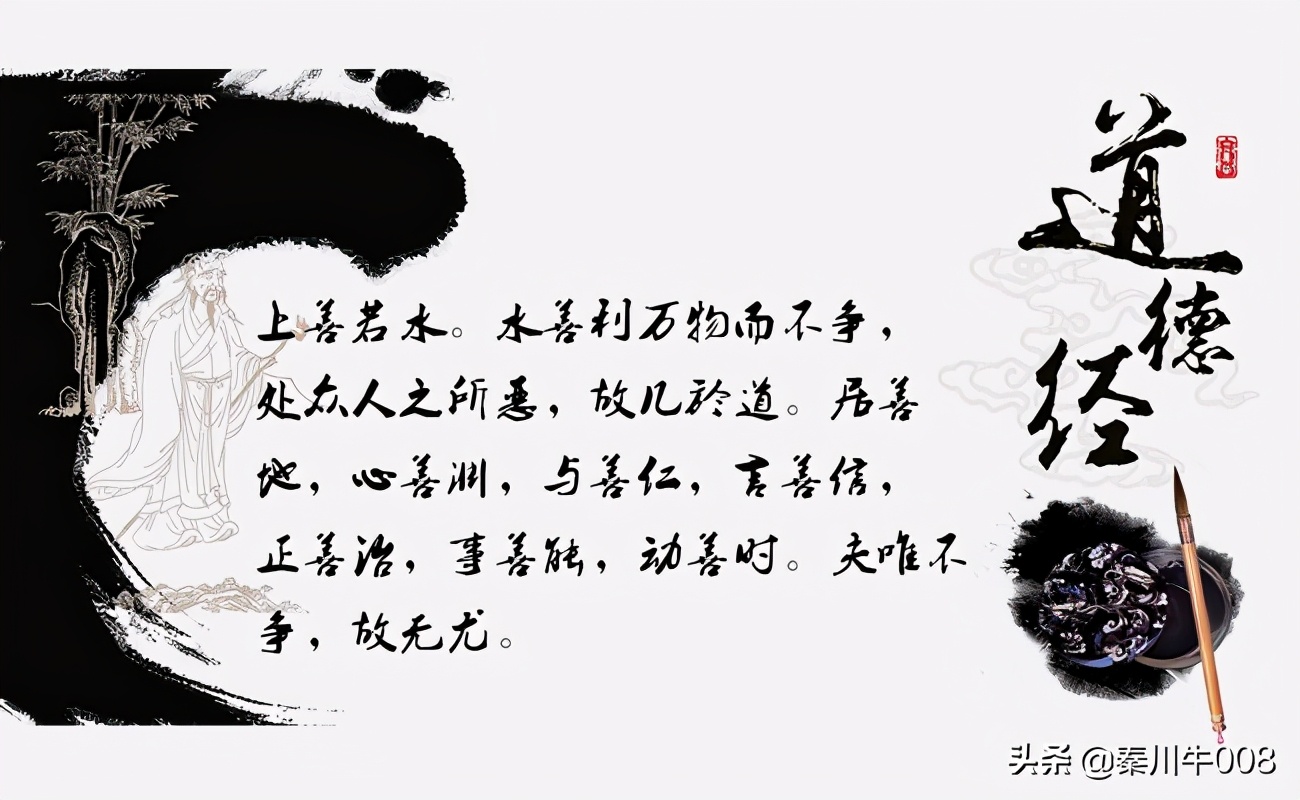 上善若水。水善利万物而不争，
处众人之所恶，故几於道。居善
地，心善渊，与善仁，言善信，
正善治，事善能，动善时。夫唯不
争，故无尤。
道德经
头条 @秦川牛008